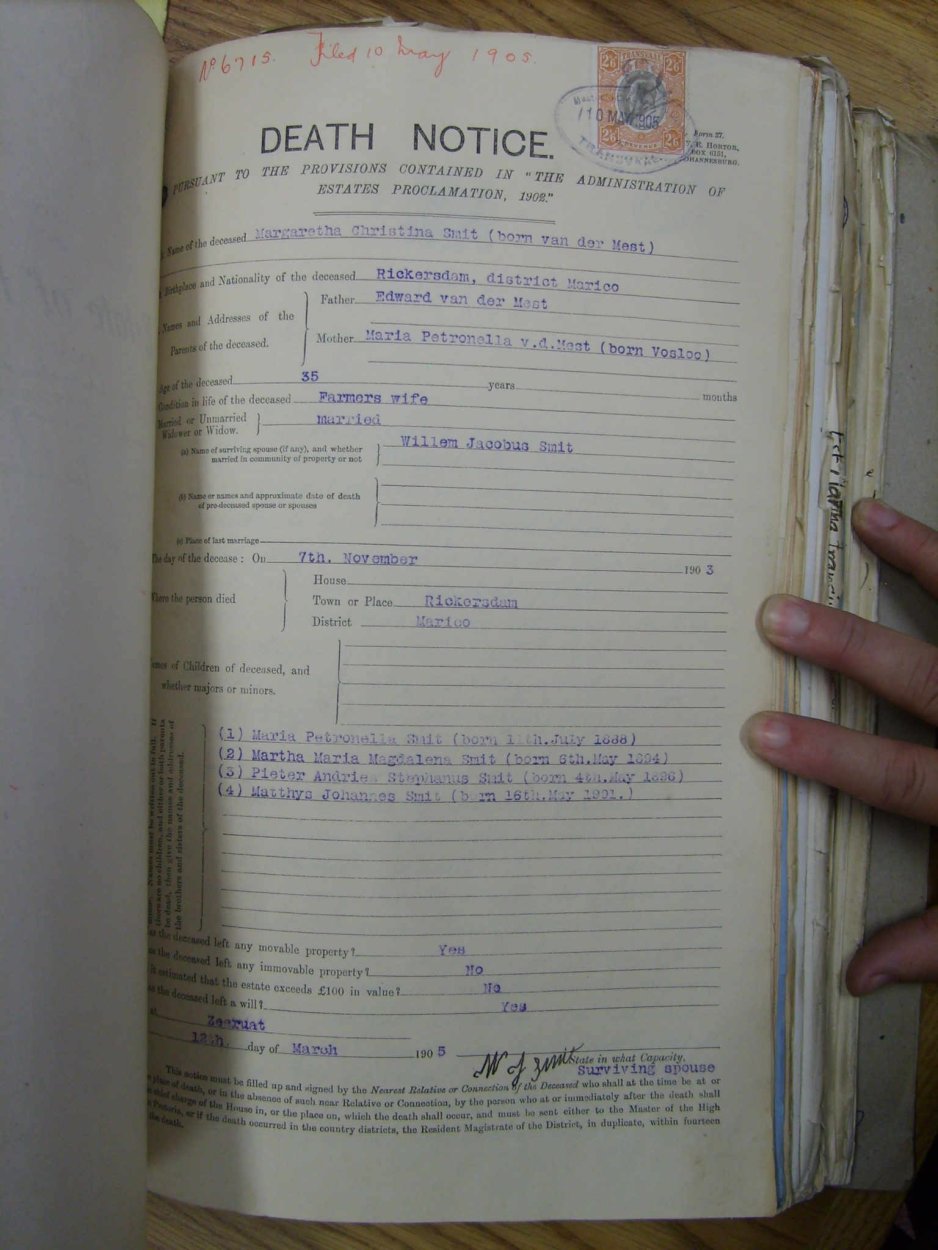 No 6715. Filed 10 May 1905.
TRANSVAAL
2/6 2/6
10 MAY 1905
2/6 REVENUE 2/6
TRANSVAAL
Form 27.
R. HORTON,
BOX 6151,
JOHANNESBURG.
DEATH NOTICE.
PURSUANT TO THE PROVISIONS CONTAINED IN "THE ADMINISTRATION OF
ESTATES PROCLAMATION, 1902."
Name of the deceased Margaretha Christina Smit (born van der Mest)
Birthplace and Nationality of the deceased Rickersdam, district Marico
Names and Addresses of the Parents of the deceased.
Father Edward van der Mest
Mother Maria Petronella v.d.Mest (born Vosloo)
Age of the deceased 35 years months
Condition in life of the deceased Farmers wife
Married or Unmarried
Widower or Widow. married
(a) Name of surviving spouse (if any), and whether
married in community of property or not
Willem Jacobus Smit
(b) Name or names and approximate date of death
of pre-deceased spouse or spouses
(c) Place of last marriage
The day of the decease: On 7th. November 1903
Where the person died
House
Town or Place Rickersdam
District Marico
of Children of deceased, and
whether majors or minors.
(1) Maria Petronella Smit (born 11th.July 1888)
(2) Martha Maria Magdalena Smit (born 6th.May 1894)
(3) Pieter Andries Stephanus Smit (born 4th.May 1896)
(4) Matthys Johannes Smit (b rn 16th.May 1901.)
there are no children, and either or both parents
be dead, then give the names and addresses of
the brothers and sisters of the deceased.
the deceased left any movable property? Yes
the deceased left any immovable property? No
estimated that the estate exceeds £100 in value? No
the deceased left a will? Yes
Zeerust
12th. day of March 1905
W J Smit State in what Capacity.
Surviving spouse
This notice must be filled up and signed by the Nearest Relative or Connection of the Deceased who shall at the time be at or
place of death, or in the absence of such near Relative or Connection, by the person who at or immediately after the death shall
chief charge of the House in, or the place on, which the death shall occur, and must be sent either to the Master of the High
Pretoria, or if the death occurred in the country districts, the Resident Magistrate of the District, in duplicate, within fourteen
the death.